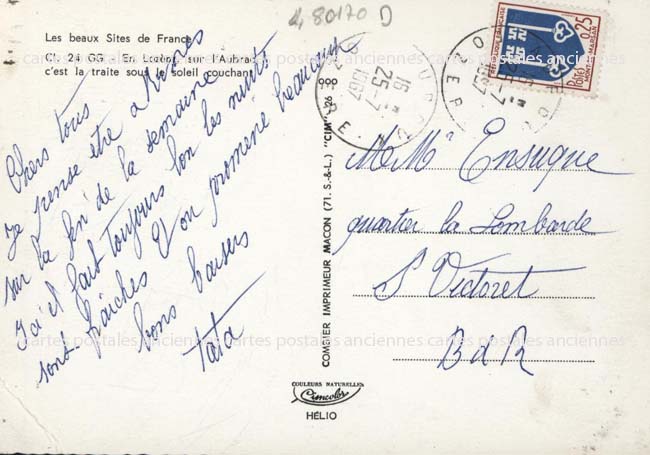 4, 80170 D
Les beaux Sites de France
Cl. 24 GG - En Lozère, sur l'Aubrac
c'est la traite sous le soleil couchant
Chers tous
Je pense etre a
sur la fin de la semaine
Ici il fait toujours bon les nuits
sont fraiches Et on promène beaucoup
bons baisers
tata
COMBIER IMPRIMEUR MACON (71. S.-&-L.) "CIM"
COULEURS NATURELLES
Cimcolor
HÉLIO
15 H
25-7
1967
REPUBLIQUE FRANÇAISE
0,25
POSTES
MONT-DE-MARSAN
M. Me Ensuque
quartier la Lombarde
St Victoret
B d R
cartes postales anciennes cartes postales anciennes cartes postales anciennes